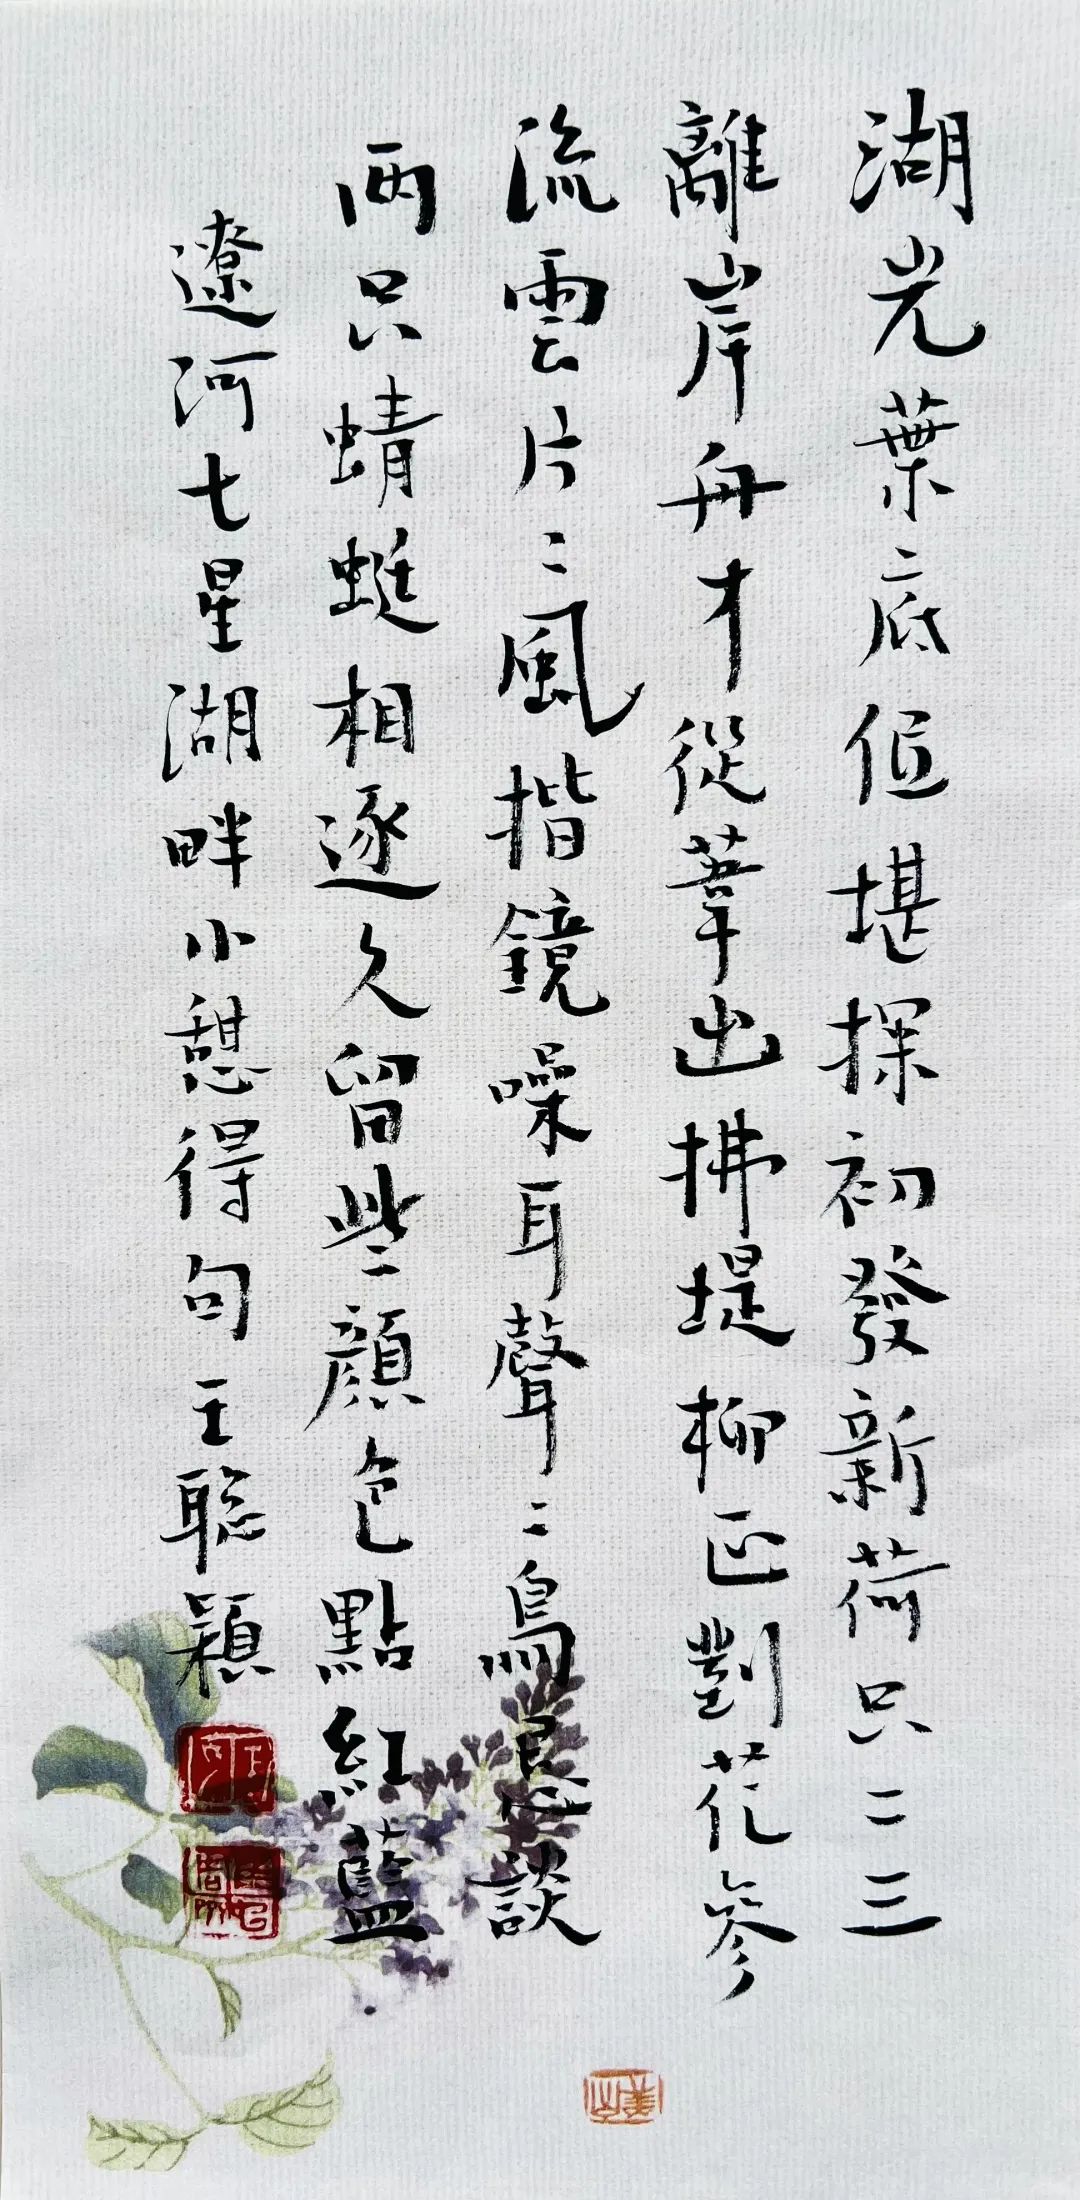 湖光葉底值堪探初發新荷只二三
離岸舟才從葦出拂堤柳正對花參
流雲片〻風揩鏡噪耳聲〻鳥恳談
两只蜻蜓相逐久留些顏色點紅藍
遼河七星湖畔小憩得句王聡穎